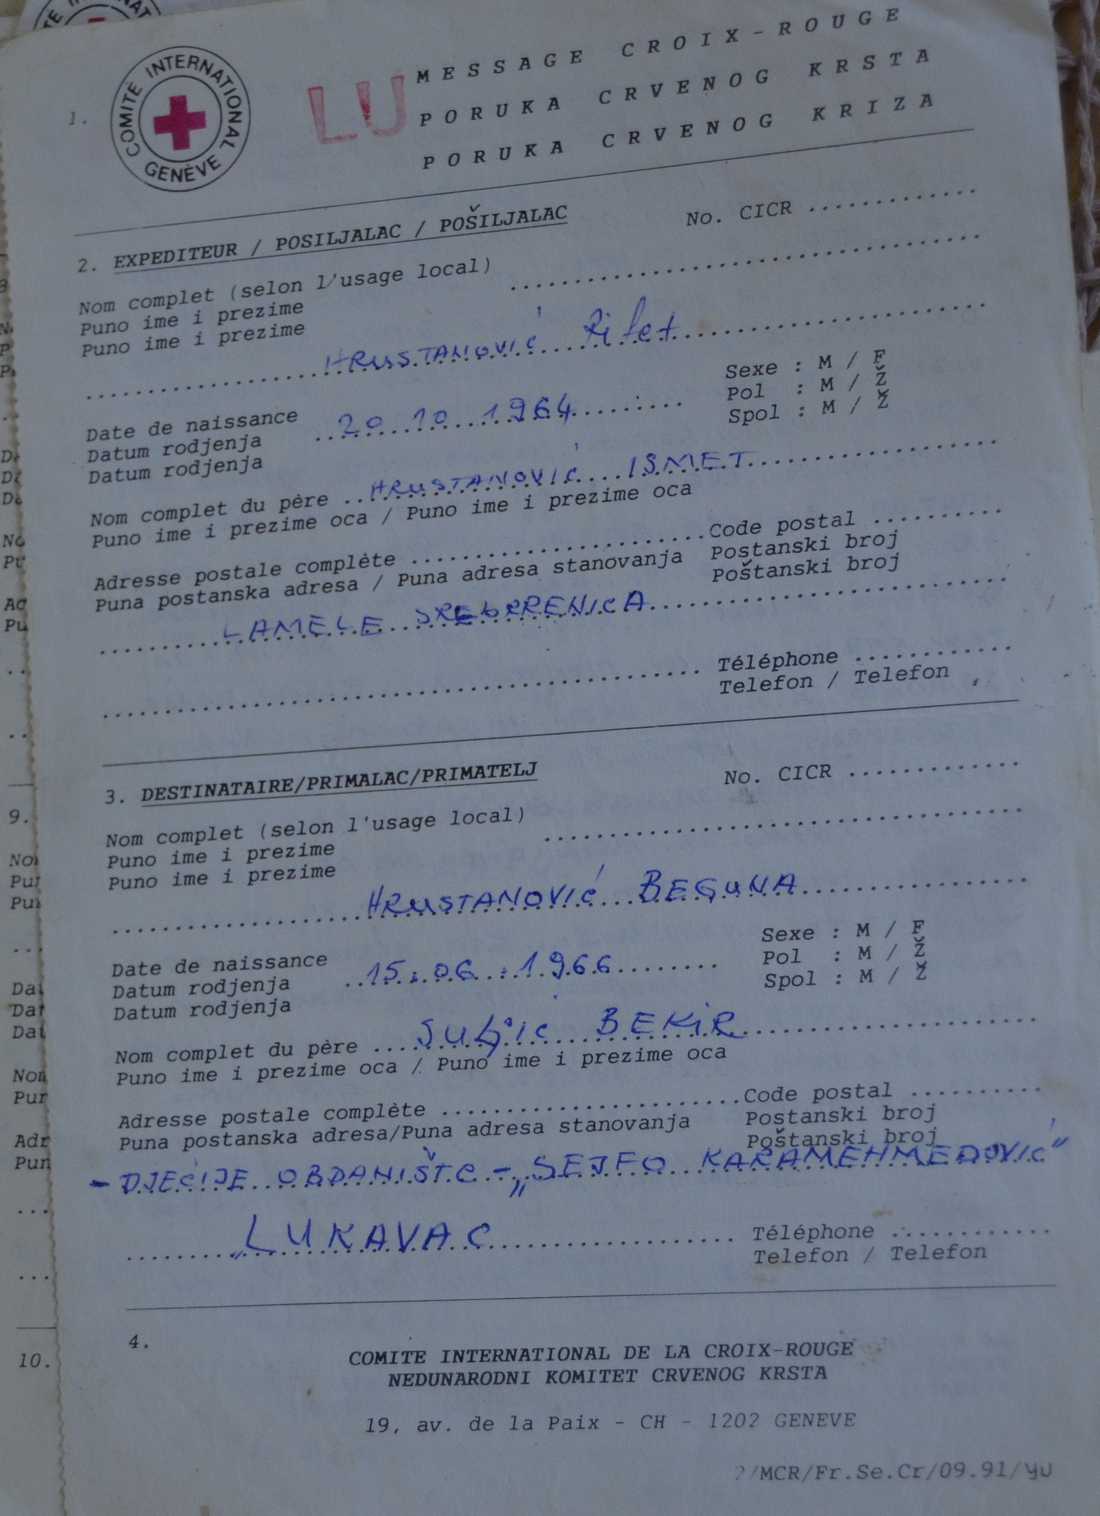 1.
COMITÉ INTERNATIONAL GENÈVE
LU
MESSAGE CROIX-ROUGE
PORUKA CRVENOG KRSTA
PORUKA CRVENOG KRIZA
2. EXPEDITEUR / POSILJALAC / POŠILJALAC
No. CICR ..............
Nom complet (selon l'usage local)
Puno ime i prezime
Puno ime i prezime
HRUSTANOVIĆ Rifet
Date de naissance
Datum rodjenja
Datum rodjenja
20 10 1964
Sexe : M / F
Pol : M / Ž
Spol : M / Ž
Nom complet du père .. HRUSTANOVIĆ ISMET
Puno ime i prezime oca / Puno ime i prezime oca
Adresse postale complète ........................ Code postal ..........
Puna postanska adresa / Puna adresa stanovanja Postanski broj
Poštanski broj
LAMELE SREBRRENICA
Téléphone ............
Telefon / Telefon
3. DESTINATAIRE/PRIMALAC/PRIMATELJ
No. CICR ..............
Nom complet (selon l'usage local)
Puno ime i prezime
Puno ime i prezime
HRUSTANOVIĆ BEGUNA
Date de naissance
Datum rodjenja
Datum rodjenja
15.06.1966
Sexe : M / F
Pol : M / Ž
Spol : M / Ž
Nom complet du père .... BEKIR
Puno ime i prezime oca / Puno ime i prezime oca
Adresse postale complète ........................ Code postal ..........
Puna postanska adresa/Puna adresa stanovanja Postanski broj
Poštanski broj
- DJEČIJE OBDANIŠTE - „SEJFO KARAMEHMEDOVIĆ"
„LUKAVAC
Téléphone ............
Telefon / Telefon
4.
COMITE INTERNATIONAL DE LA CROIX-ROUGE
NEDUNARODNI KOMITET CRVENOG KRSTA
19, av. de la Paix - CH - 1202 GENEVE
/MCR/Fr.Se.Cr/09.91/YU
9.
10.